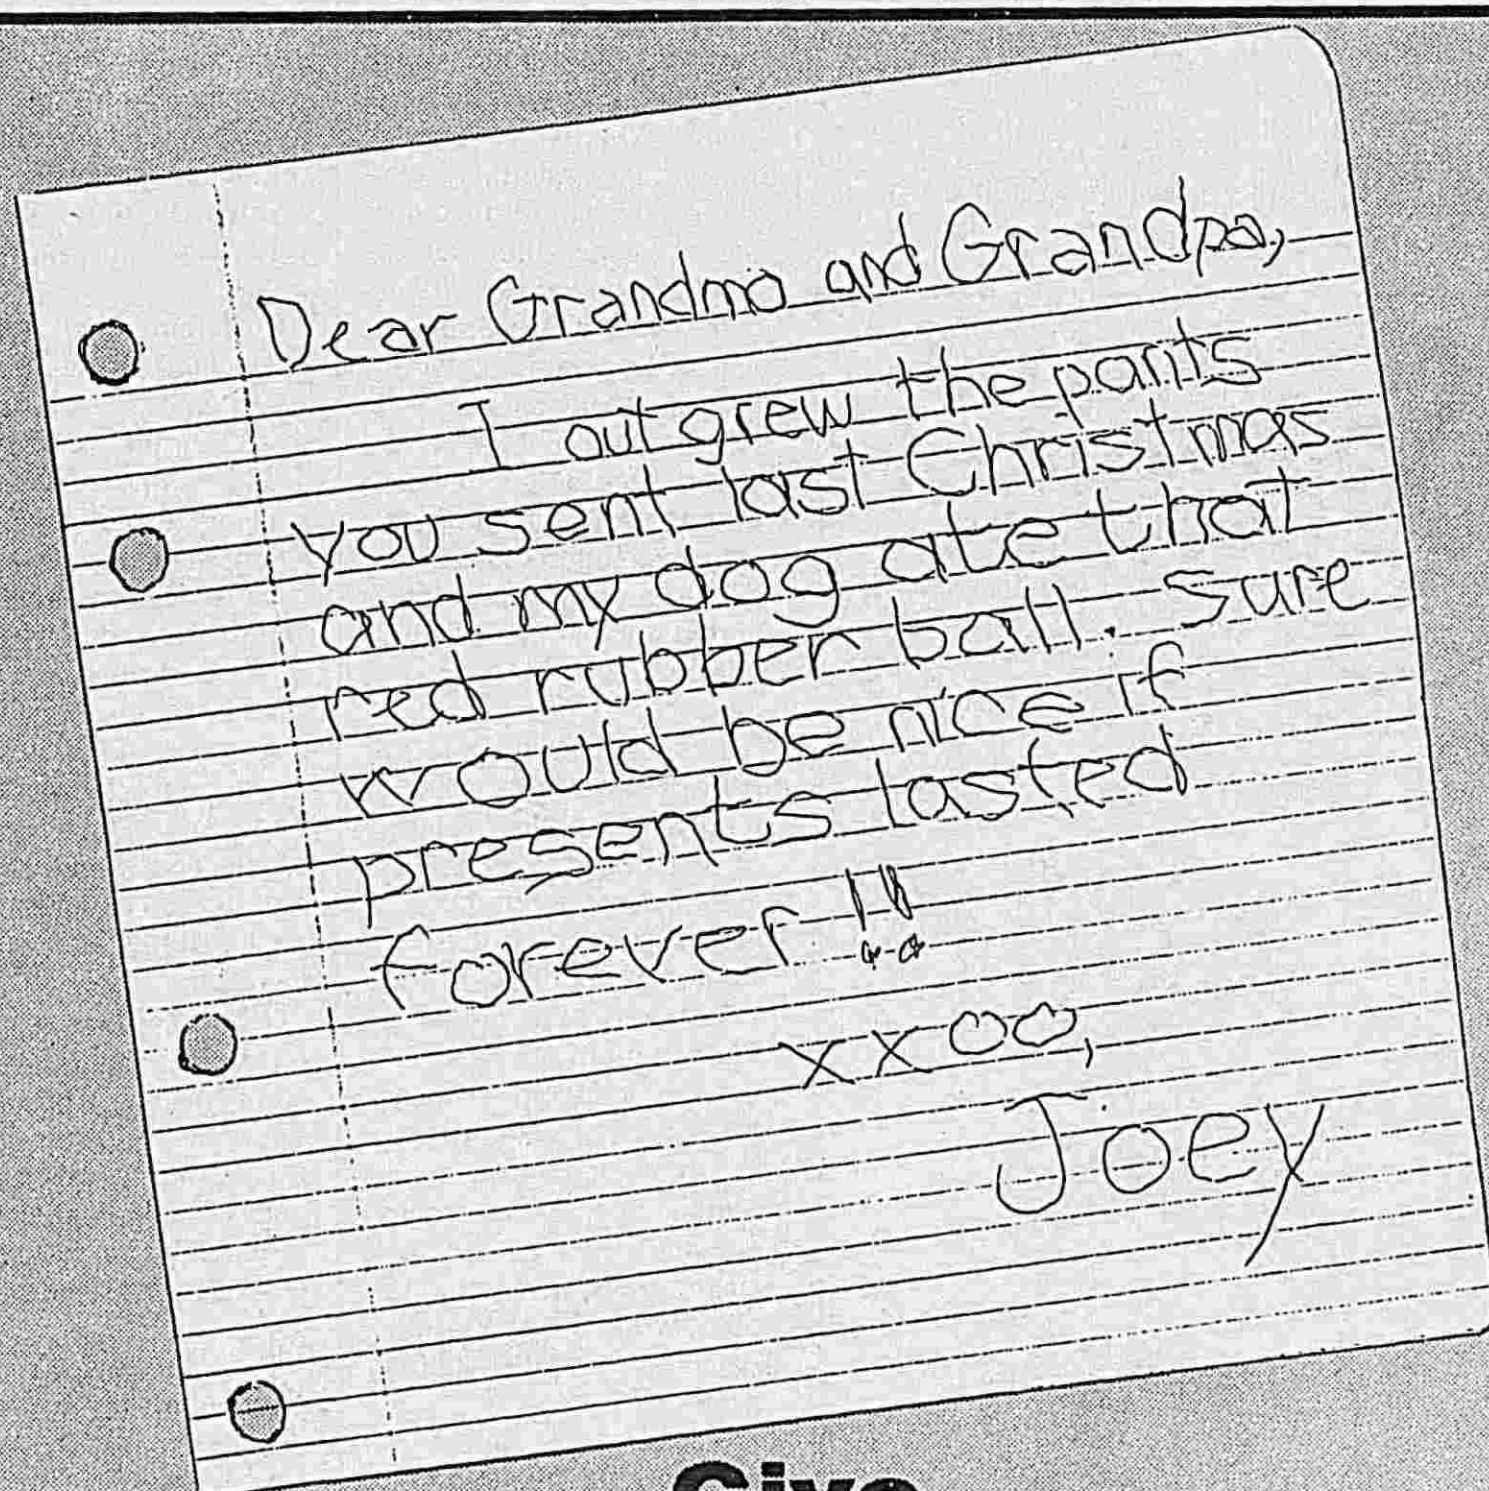 Dear Grandma and Grandpa,
I outgrew the pants
you sent last Christmas
and my dog ate that
red rubber ball. Sure
would be nice if
presents lasted
forever!!
xxoo,
Joey
Give